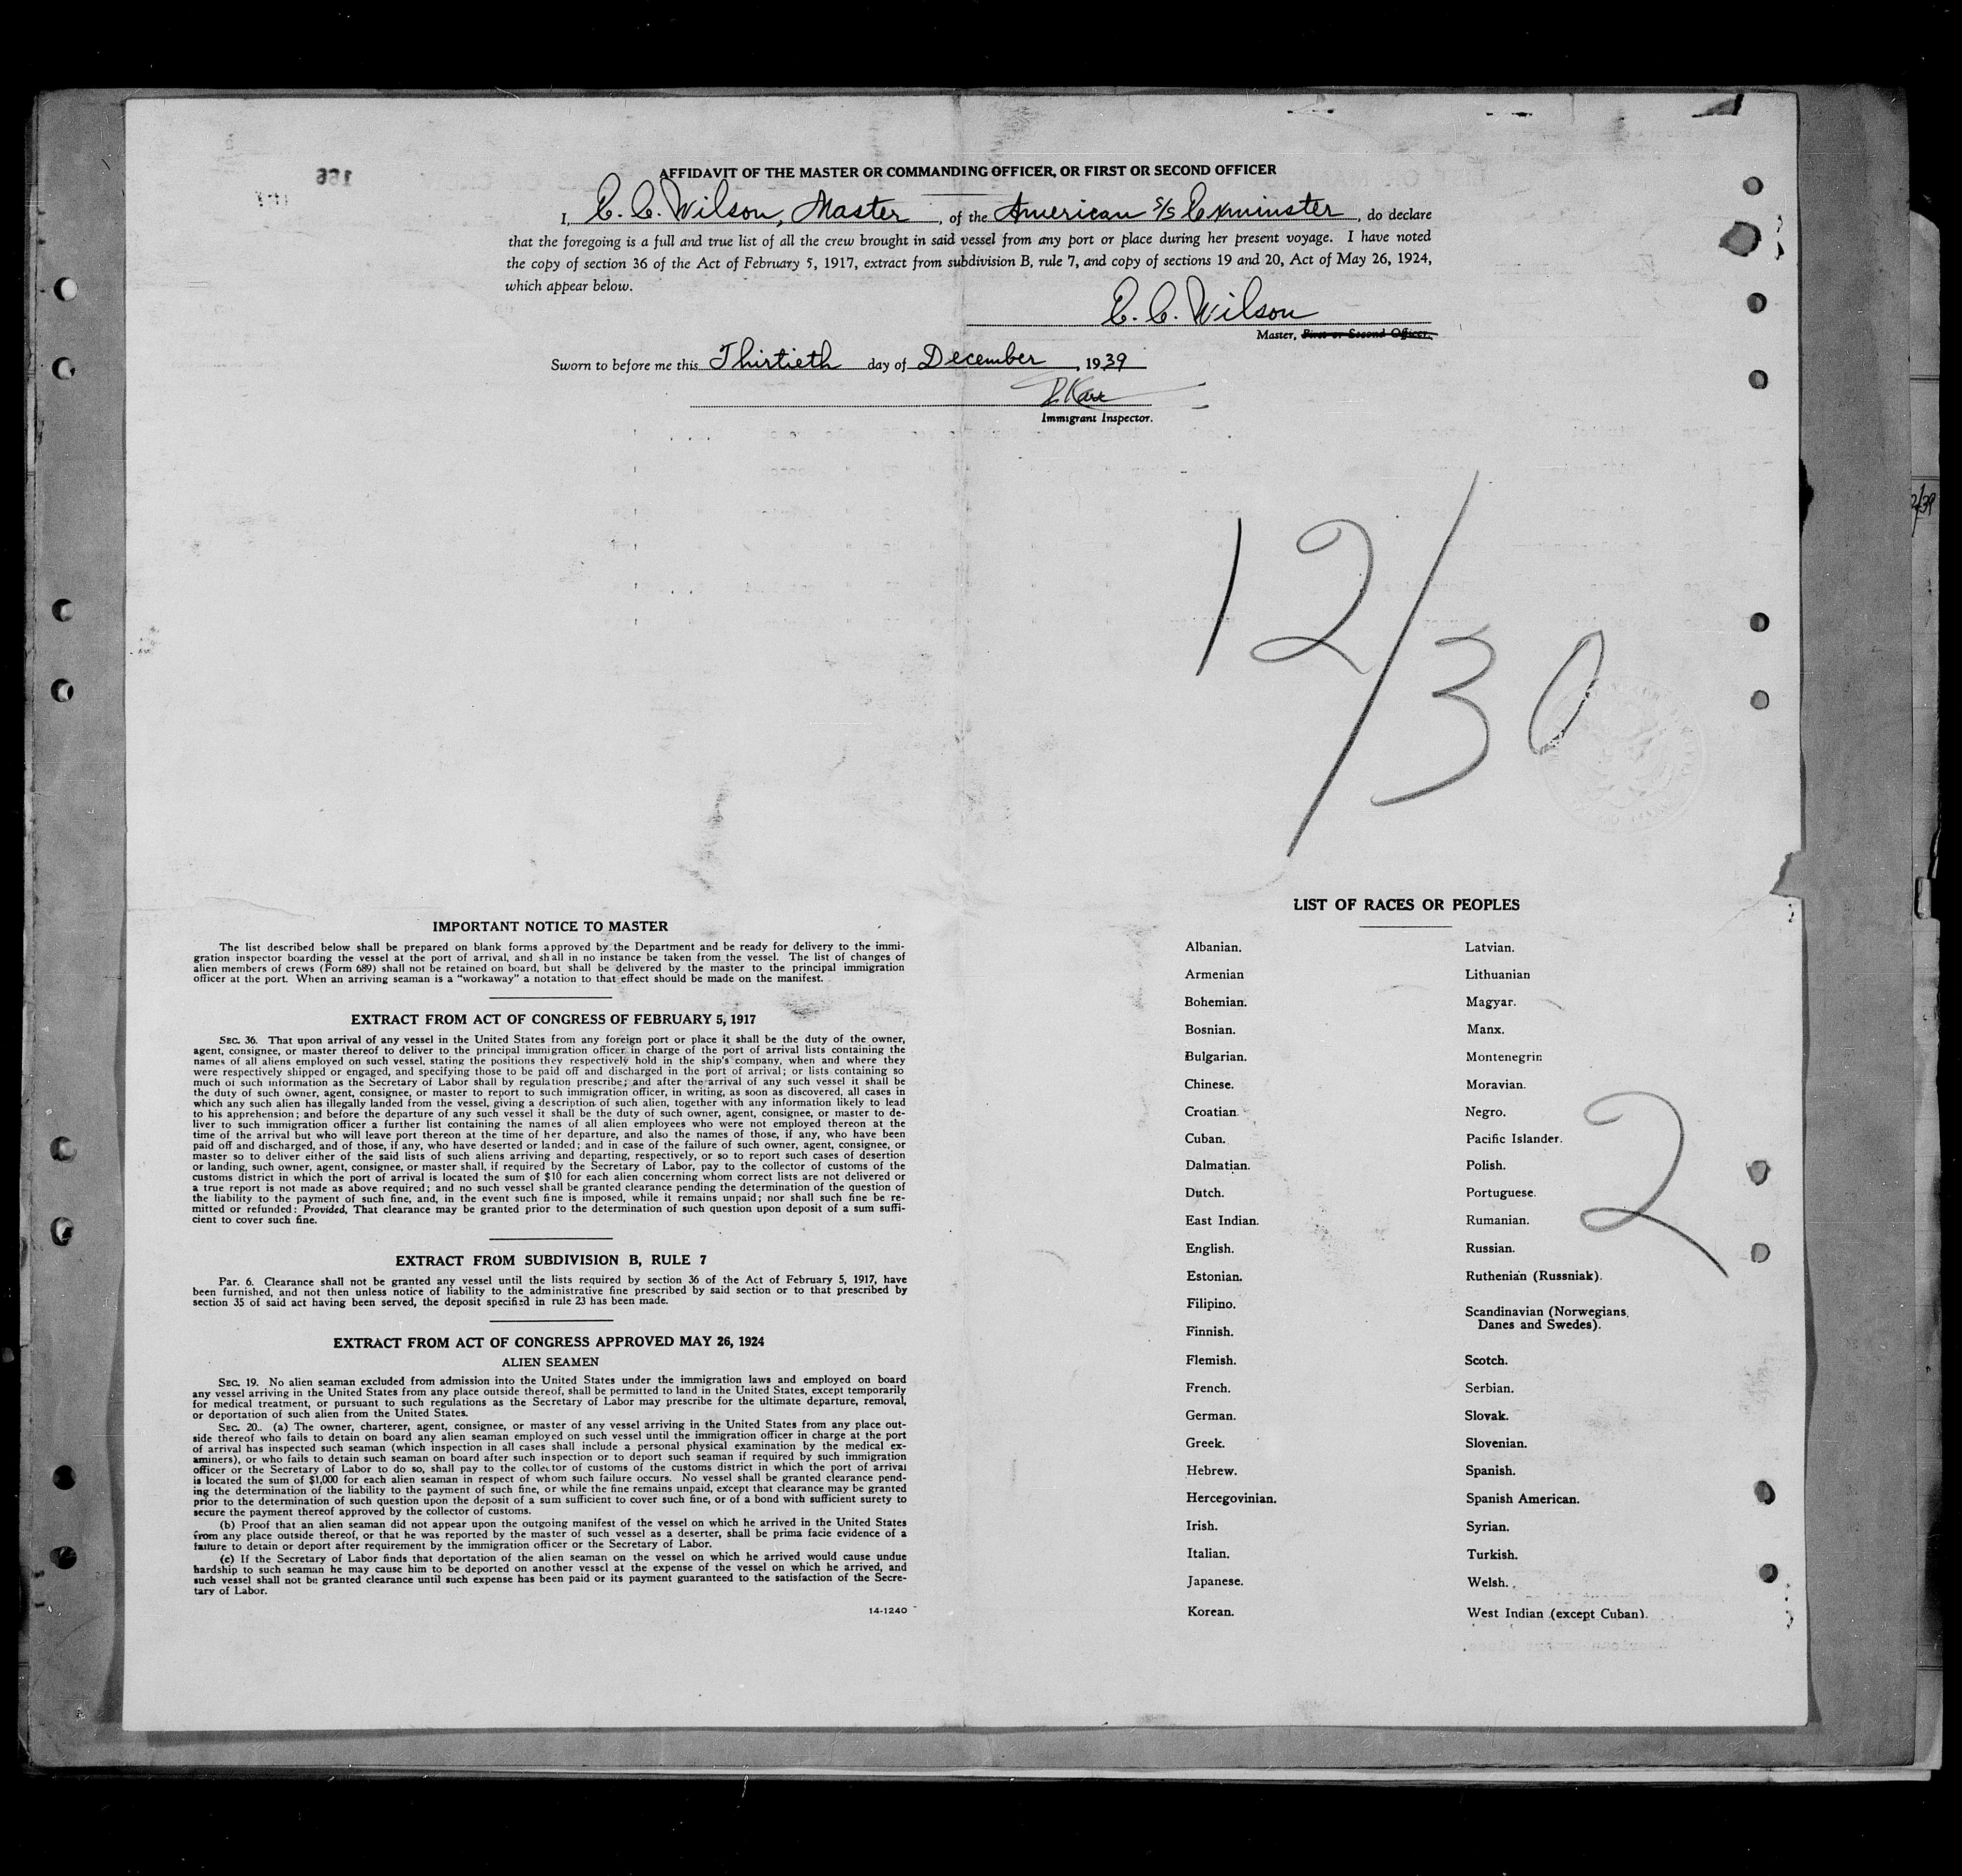 166
AFFIDAVIT OF THE MASTER OR COMMANDING OFFICER, OR FIRST OR SECOND OFFICER
I, C. C. Wilson, Master, of the American S/S Exminster, do declare
that the foregoing is a full and true list of all the crew brought in said vessel from any port or place during her present voyage. I have noted
the copy of section 36 of the Act of February 5, 1917, extract from subdivision B, rule 7, and copy of sections 19 and 20, Act of May 26, 1924,
which appear below.
C. C. Wilson
Master, First or Second Officer.
Sworn to before me this Thirtieth day of December, 1939
Immigrant Inspector.
12/30
2/39
IMPORTANT NOTICE TO MASTER
The list described below shall be prepared on blank forms approved by the Department and be ready for delivery to the immi-
gration inspector boarding the vessel at the port of arrival, and shall in no instance be taken from the vessel. The list of changes of
alien members of crews (Form 689) shall not be retained on board, but shall be delivered by the master to the principal immigration
officer at the port. When an arriving seaman is a "workaway" a notation to that effect should be made on the manifest.
EXTRACT FROM ACT OF CONGRESS OF FEBRUARY 5, 1917
SEC. 36. That upon arrival of any vessel in the United States from any foreign port or place it shall be the duty of the owner,
agent, consignee, or master thereof to deliver to the principal immigration officer in charge of the port of arrival lists containing the
names of all aliens employed on such vessel, stating the positions they respectively hold in the ship's company, when and where they
were respectively shipped or engaged, and specifying those to be paid off and discharged in the port of arrival; or lists containing so
much of such information as the Secretary of Labor shall by regulation prescribe; and after the arrival of any such vessel it shall be
the duty of such owner, agent, consignee, or master to report to such immigration officer, in writing, as soon as discovered, all cases in
which any such alien has illegally landed from the vessel, giving a description of such alien, together with any information likely to lead
to his apprehension; and before the departure of any such vessel it shall be the duty of such owner, agent, consignee, or master to de-
liver to such immigration officer a further list containing the names of all alien employees who were not employed thereon at the
time of the arrival but who will leave port thereon at the time of her departure, and also the names of those, if any, who have been
paid off and discharged, and of those, if any, who have deserted or landed; and in case of the failure of such owner, agent, consignee, or
master so to deliver either of the said lists of such aliens arriving and departing, respectively, or so to report such cases of desertion
or landing, such owner, agent, consignee, or master shall, if required by the Secretary of Labor, pay to the collector of customs of the
customs district in which the port of arrival is located the sum of $10 for each alien concerning whom correct lists are not delivered or
a true report is not made as above required; and no such vessel shall be granted clearance pending the determination of the question of
the liability to the payment of such fine, and, in the event such fine is imposed, while it remains unpaid; nor shall such fine be re-
mitted or refunded: Provided, That clearance may be granted prior to the determination of such question upon deposit of a sum suffi-
cient to cover such fine.
EXTRACT FROM SUBDIVISION B, RULE 7
Par. 6. Clearance shall not be granted any vessel until the lists required by section 36 of the Act of February 5, 1917, have
been furnished, and not then unless notice of liability to the administrative fine prescribed by said section or to that prescribed by
section 35 of said act having been served, the deposit specified in rule 23 has been made.
EXTRACT FROM ACT OF CONGRESS APPROVED MAY 26, 1924
ALIEN SEAMEN
SEC. 19. No alien seaman excluded from admission into the United States under the immigration laws and employed on board
any vessel arriving in the United States from any place outside thereof, shall be permitted to land in the United States, except temporarily
for medical treatment, or pursuant to such regulations as the Secretary of Labor may prescribe for the ultimate departure, removal,
or deportation of such alien from the United States.
SEC. 20.. (a) The owner, charterer, agent, consignee, or master of any vessel arriving in the United States from any place out-
side thereof who fails to detain on board any alien seaman employed on such vessel until the immigration officer in charge at the port
of arrival has inspected such seaman (which inspection in all cases shall include a personal physical examination by the medical ex-
aminers), or who fails to detain such seaman on board after such inspection or to deport such seaman if required by such immigration
officer or the Secretary of Labor to do so, shall pay to the collector of customs of the customs district in which the port of arrival
is located the sum of $1,000 for each alien seaman in respect of whom such failure occurs. No vessel shall be granted clearance pend-
ing the determination of the liability to the payment of such fine, or while the fine remains unpaid, except that clearance may be granted
prior to the determination of such question upon the deposit of a sum sufficient to cover such fine, or of a bond with sufficient surety to
secure the payment thereof approved by the collector of customs.
(b) Proof that an alien seaman did not appear upon the outgoing manifest of the vessel on which he arrived in the United States
from any place outside thereof, or that he was reported by the master of such vessel as a deserter, shall be prima facie evidence of a
failure to detain or deport after requirement by the immigration officer or the Secretary of Labor.
(c) If the Secretary of Labor finds that deportation of the alien seaman on the vessel on which he arrived would cause undue
hardship to such seaman he may cause him to be deported on another vessel at the expense of the vessel on which he arrived, and
such vessel shall not be granted clearance until such expense has been paid or its payment guaranteed to the satisfaction of the Secre-
tary of Labor.
14-1240
LIST OF RACES OR PEOPLES
Albanian.
Armenian
Bohemian.
Bosnian.
Bulgarian.
Chinese.
Croatian.
Cuban.
Dalmatian.
Dutch.
East Indian.
English.
Estonian.
Filipino.
Finnish.
Flemish.
French.
German.
Greek.
Hebrew.
Hercegovinian.
Irish.
Italian.
Japanese.
Korean.
Latvian.
Lithuanian
Magyar.
Manx.
Montenegrin
Moravian.
Negro.
Pacific Islander.
Polish.
Portuguese.
Rumanian.
Russian.
Ruthenian (Russniak).
Scandinavian (Norwegians,
Danes and Swedes).
Scotch.
Serbian.
Slovak.
Slovenian.
Spanish.
Spanish American.
Syrian.
Turkish.
Welsh.
West Indian (except Cuban).
2